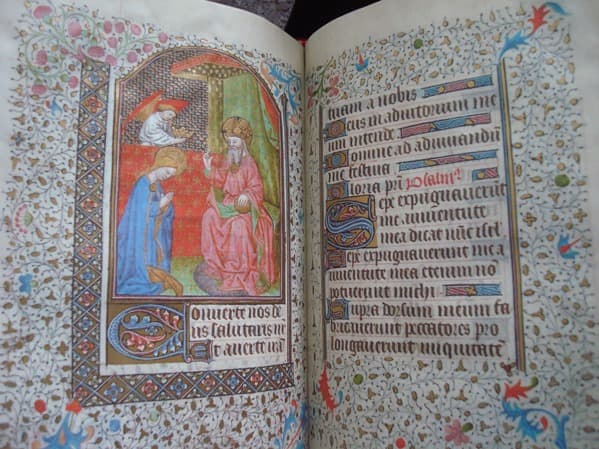 Converte nos de
us salutaris nr
Et averte iram
tuam a nobis
Deus in adiutorium me
um intende
Domine ad adiuvandū
me festina
Gloria pri Psalm⁹
Sepe expugnaverūt
me a iuventute
mea dicat nūc isrl
Sepe expugnaverunt me a
iuventute mea etenim no
potuerunt michi
Supra dorsum meum fa
bricaverunt peccatores pro
longaverunt iniquitatē